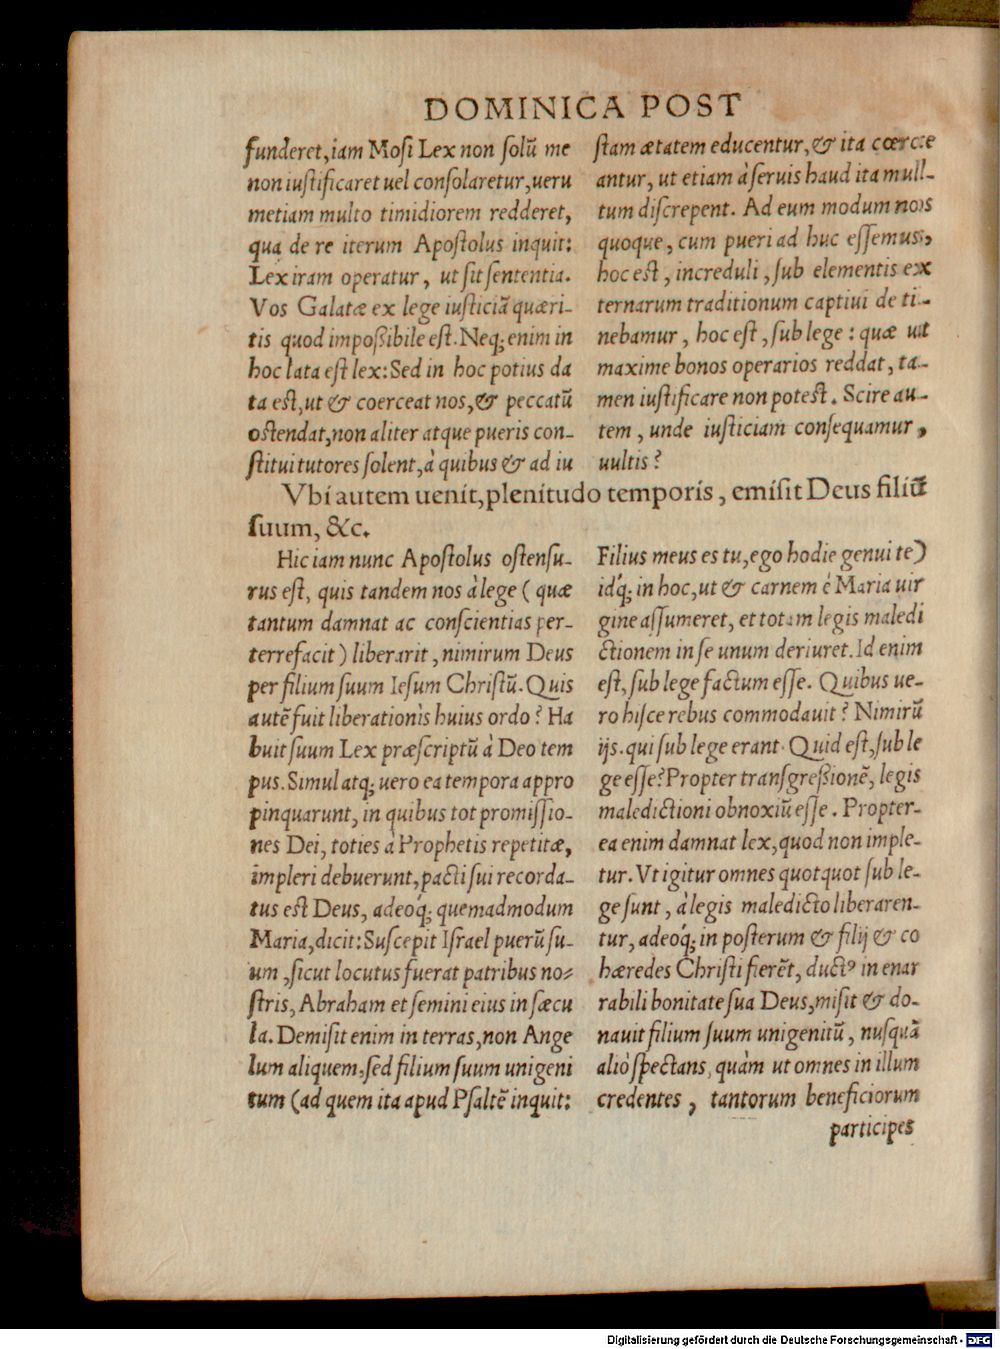 DOMINICA POST
funderet, iam Mosi Lex non solũ me
non iustificaret uel consolaretur, ueru
metiam multo timidiorem redderet,
qua de re iterum Apostolus inquit:
Lex iram operatur, ut sit sententia.
Vos Galatæ ex lege iusticiã quæri-
tis quod impoßibile est. Neq; enim in
hoc lata est lex: Sed in hoc potius da
ta est, ut & coerceat nos, & peccatũ
ostendat, non aliter atque pueris con-
stitui tutores solent, à quibus & ad iu
stam ætatem educentur, & ita coerce
antur, ut etiam à seruis haud ita mul-
tum discrepent. Ad eum modum nos
quoque, cum pueri ad huc essemus,
hoc est, increduli, sub elementis ex
ternarum traditionum captiui de ti-
nebamur, hoc est, sub lege: quæ ut
maxime bonos operarios reddat, ta-
men iustificare non potest. Scire au-
tem, unde iusticiam consequamur,
uultis?
Vbi autem uenit, plenitudo temporis, emisit Deus filiũ
suum, &c.
Hic iam nunc Apostolus ostensu-
rus est, quis tandem nos à lege (quæ
tantum damnat ac conscientias per-
terrefacit) liberarit, nimirum Deus
per filium suum Iesum Christũ. Quis
autẽ fuit liberationis huius ordo? Ha
buit suum Lex præscriptũ à Deo tem
pus. Simul atq; uero ea tempora appro
pinquarunt, in quibus tot promissio-
nes Dei, toties à Prophetis repetitæ,
impleri debuerunt, pacti sui recorda-
tus est Deus, adeoq́; quemadmodum
Maria, dicit: Suscepit Israel puerũ su-
um, sicut locutus fuerat patribus no-
stris, Abraham et semini eius in sæcu
la. Demisit enim in terras, non Ange
lum aliquem, sed filium suum unigeni
tum (ad quem ita apud Psaltẽ inquit:
Filius meus es tu, ego hodie genui te)
idq́; in hoc, ut & carnem è Maria uir
gine assumeret, et totam legis maledi
ctionem in se unum deriuret. Id enim
est, sub lege factum esse. Quibus ue-
ro hisce rebus commodauit? Nimirũ
ijs. qui sub lege erant. Quid est, sub le
ge esse? Propter transgreßionẽ, legis
maledictioni obnoxiũ esse. Propter-
ea enim damnat lex, quod non imple-
tur. Vt igitur omnes quotquot sub le-
ge sunt, à legis maledicto liberaren-
tur, adeoq́; in posterum & filij & co
hæredes Christi fierẽt, ductꝰ in enar
rabili bonitate sua Deus, misit & do-
nauit filium suum unigenitũ, nusquã
aliò spectans, quàm ut omnes in illum
credentes, tantorum beneficiorum
participes
Digitalisierung gefördert durch die Deutsche Forschungsgemeinschaft - DFG